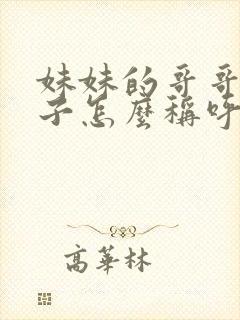 妹妹的哥哥
子怎麼稱呼
高華林